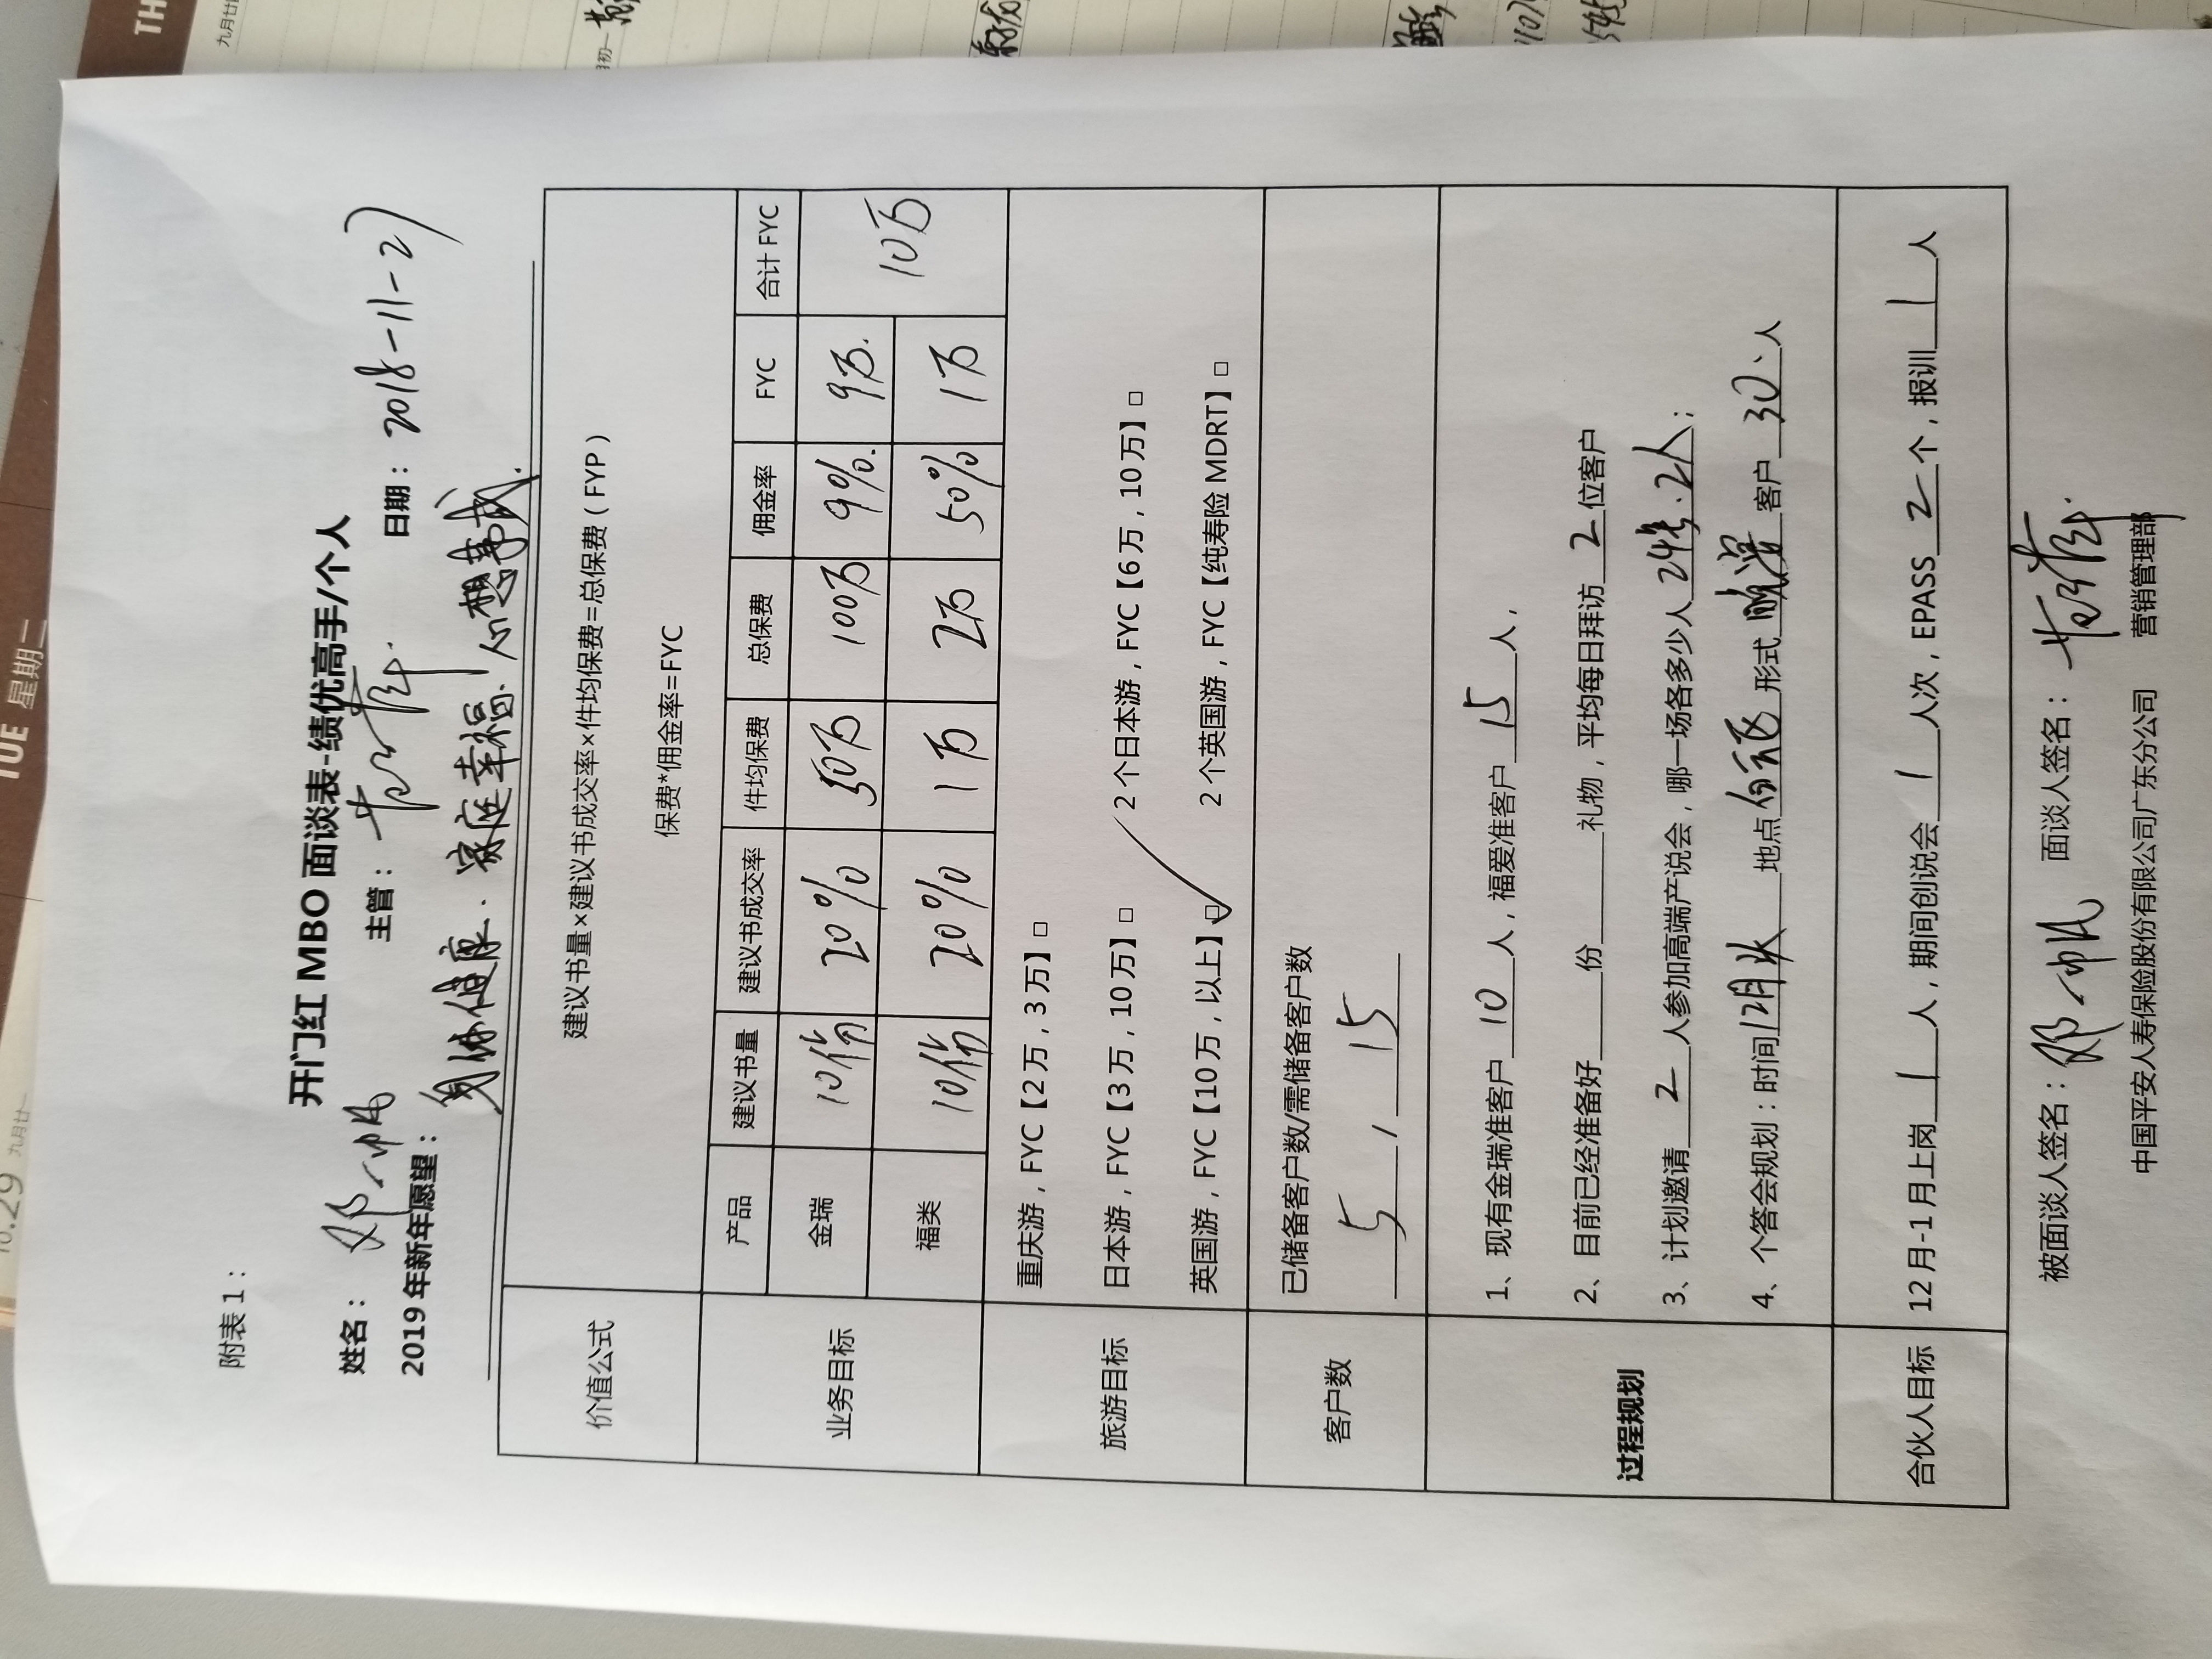 附表1：
开门红 MBO 面谈表-绩优高手/个人
姓名：邓 主管： 日期：2018-11-27
2019年新年愿望：身体健康. 家庭幸福. 心想事成.
价值公式
建议书量×建议书成交率×件均保费=总保费（FYP）
保费*佣金率=FYC
业务目标
产品 建议书量 建议书成交率 件均保费 总保费 佣金率 FYC 合计 FYC
金瑞 10份 20% 50万 100万 9%. 9万. 10万
福类 10份 20% 1万 2万 50% 1万
旅游目标
重庆游，FYC【2万，3万】□
日本游，FYC【3万，10万】□ 2个日本游，FYC【6万，10万】□
英国游，FYC【10万，以上】□ 2个英国游，FYC【纯寿险 MDRT】□
客户数
已储备客户数/需储备客户数
5 / 15
过程规划
1、现有金瑞准客户 10 人，福爱准客户 15 人，
2、目前已经准备好 份 礼物，平均每日拜访 2 位客户
3、计划邀请 2 人参加高端产说会，哪一场各多少人 2人；
4、个答会规划：时间 12月 地点 形式 客户 30、人
合伙人目标
12月-1月上岗 1 人，期间创说会 1 人次，EPASS 2 个，报训 1 人
被面谈人签名：邓 面谈人签名：
中国平安人寿保险股份有限公司广东分公司 营销管理部
TUE 星期二
10.29 九月廿一
TH
九月廿